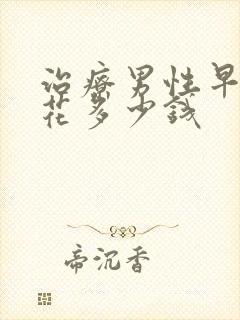 治疗男性早
花多少钱
帝沉香